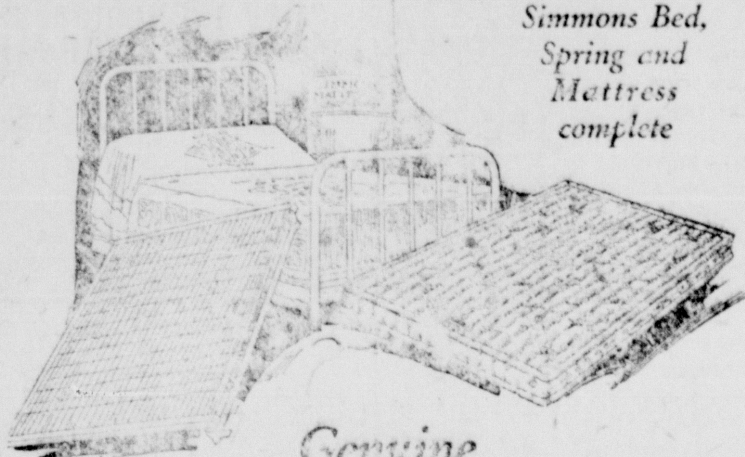 Simmons Bed,
Spring and
Mattress
complete
Genuine